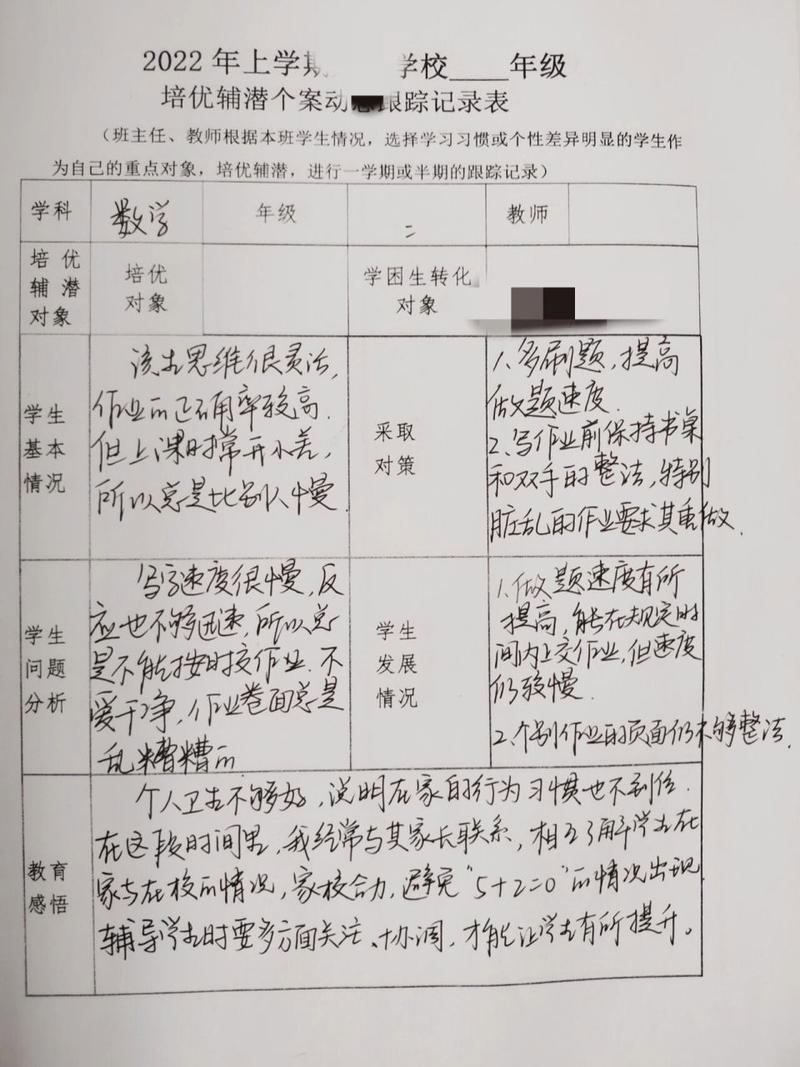 2022年上学期 学校____年级
培优辅潜个案动态跟踪记录表
（班主任、教师根据本班学生情况，选择学习习惯或个性差异明显的学生作
为自己的重点对象，培优辅潜，进行一学期或半期的跟踪记录）
学科 数学 年级 二 教师
培优
辅潜
对象
培优
对象
学困生转化
对象
学生
基本
情况
该生思维很灵活，
作业的正确率较高.
但上课时常开小差，
所以总是比别人慢
采取
对策
1、多刷题，提高
做题速度.
2、写作业前保持书桌
和双手的整洁，特别
脏乱的作业要求其重做.
学生
问题
分析
写字速度很慢，反
应也不够迅速，所以总
是不能按时交作业.不
爱干净，作业卷面总是
乱糟糟的
学生
发展
情况
1、做题速度有所
提高，能在规定时
间内上交作业，但速度
仍较慢.
2、个别作业的页面仍不够整洁.
教育
感悟
个人卫生不够好，说明在家的行为习惯也不到位.
在这段时间里，我经常与其家长联系，相互了解学生在
家与在校的情况，家校合力，避免“5+2=0”的情况出现
辅导学生时要多方面关注、协调，才能让学生有所提升。